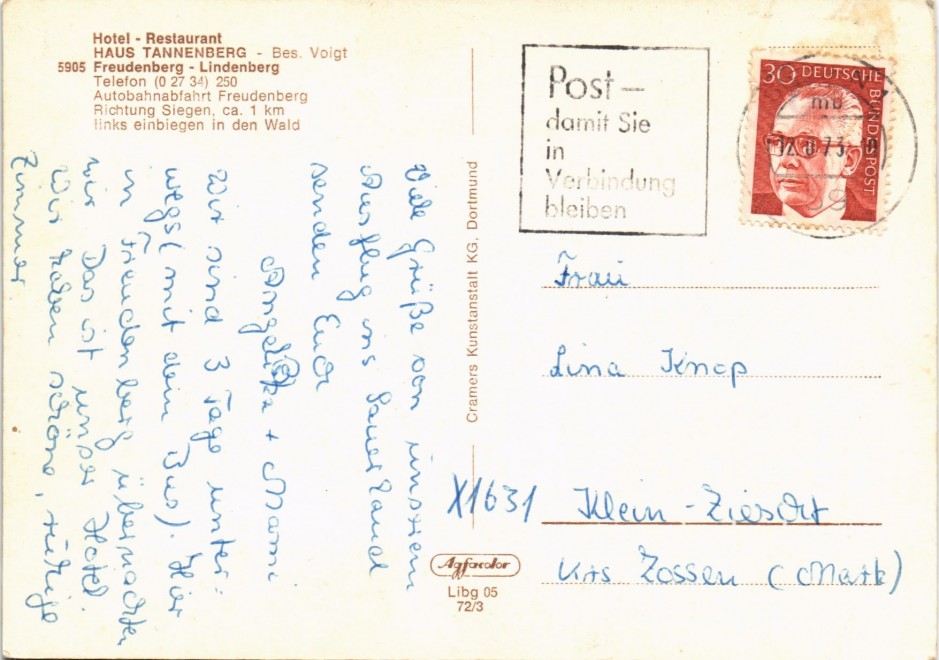 Hotel - Restaurant
HAUS TANNENBERG - Bes. Voigt
5905 Freudenberg - Lindenberg
Telefon (0 27 34) 250
Autobahnabfahrt Freudenberg
Richtung Siegen, ca. 1 km
links einbiegen in den Wald
Viele Grüße von unserem
Ausflug ins Sauerland
senden Euch
Angelika + Mami
Wir sind 3 Tage unter-
wegs (mit dem Bus). Hier
in Freudenberg übernachten
wir. Das ist unser Hotel.
Wir haben schöne, ruhige
Zimmer
Cramers Kunstanstalt KG, Dortmund
Agfacolor
Libg 05
72/3
Post –
damit Sie
in
Verbindung
bleiben
30 DEUTSCHE
BUNDESPOST
73
59
Frau
Lina Knap
X1631 Klein-Ziescht
Krs Zossen (Mark)